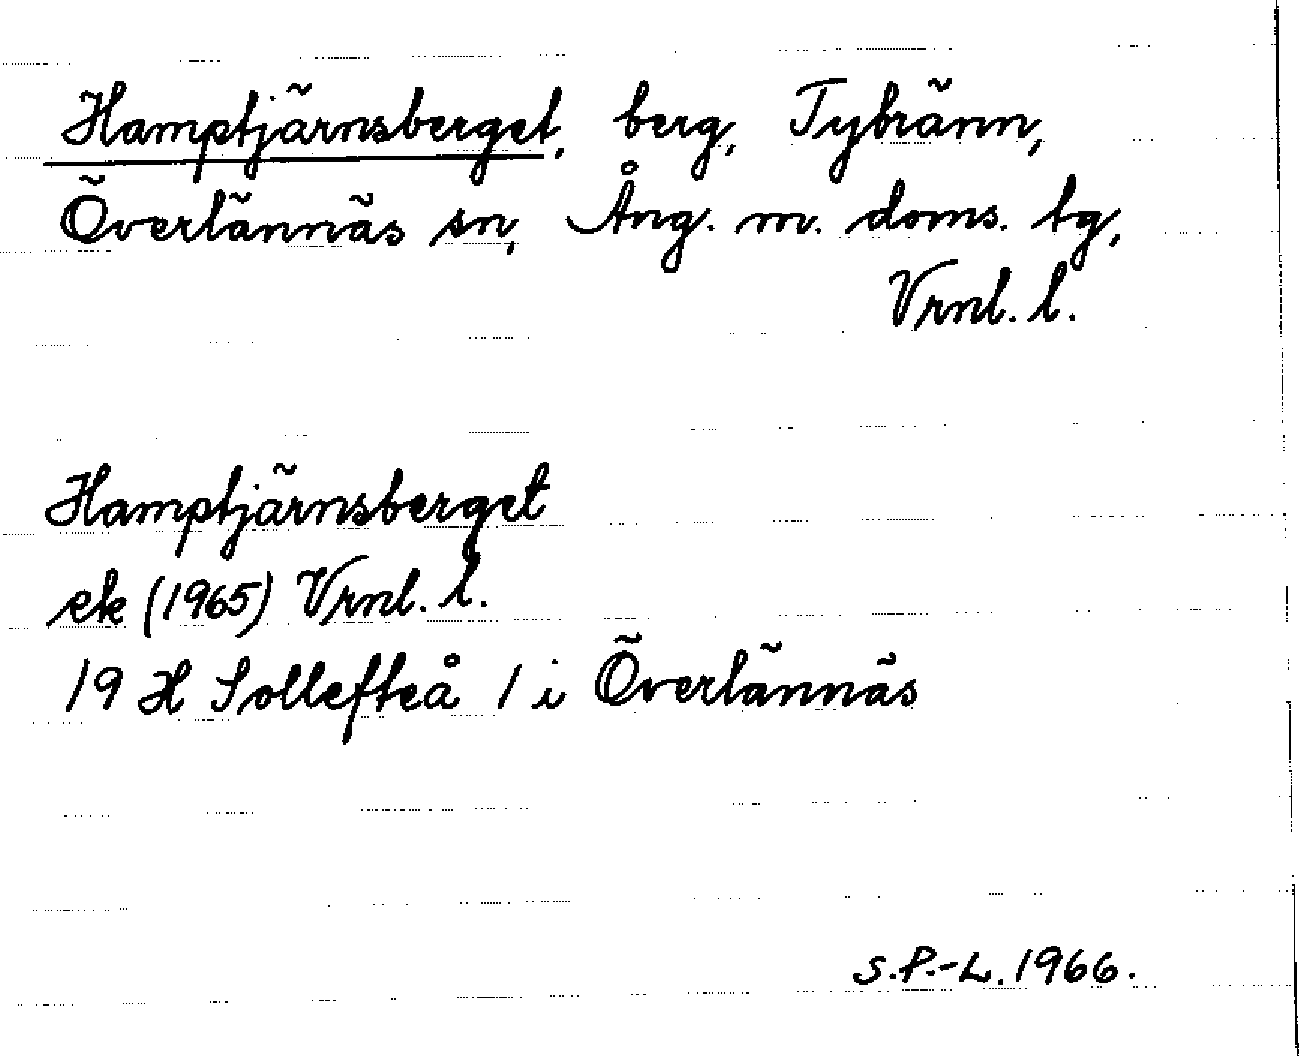 Hamptjärnsberget, berg, Tybränn,
Överlännäs sn, Ång. m. doms. tg,
Vrnl. l.
Hamptjärnsberget
ek (1965) Vrnl. l.
19 H Sollefteå 1 i Överlännäs
S.P.-L. 1966.